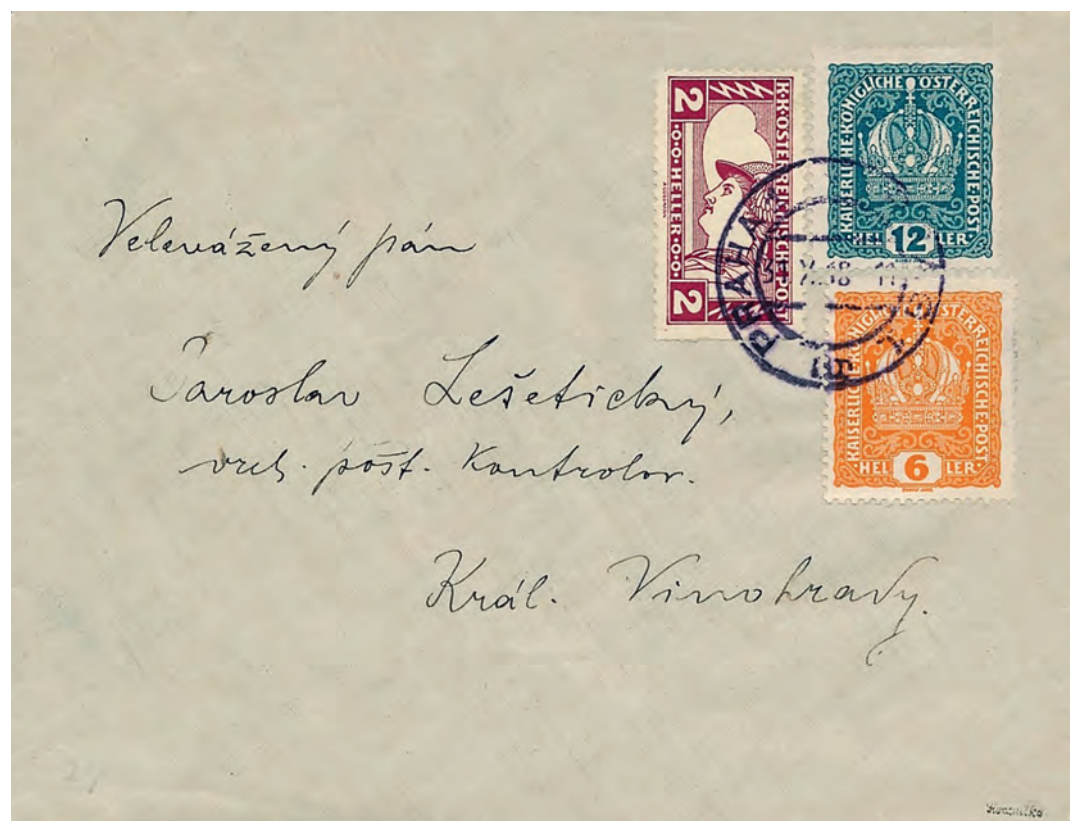 K.K.ÖSTERREICHISCHE·POST
2 HELLER 2
KAISERLICHE·KÖNIGLICHE ÖSTERREICHISCHE·POST
HEL 12 LER
PRAHA
KAISERLICHE·KÖNIGLICHE ÖSTERREICHISCHE·POST
HEL 6 LER
Velevážený pán
Jaroslav Lešetický,
vrch. pošt. Kontrolor.
Král. Vinohrady.